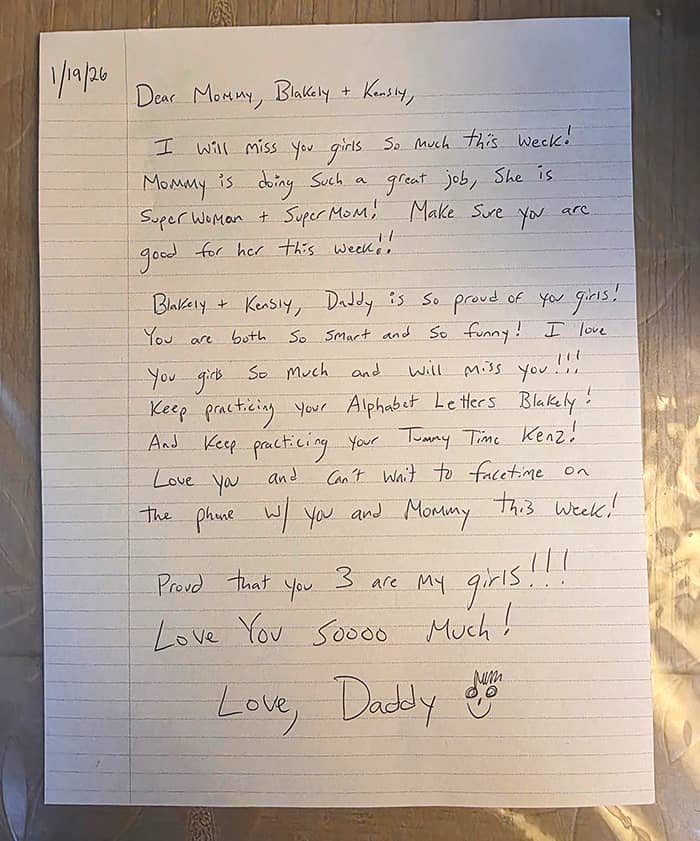 1/19/26
Dear Mommy, Blakely + Kensly,
I will miss you girls so much this week!
Mommy is doing such a great job, she is
Super Woman + Super Mom! Make sure you are
good for her this week!!
Blakely + Kensly, Daddy is so proud of you girls!
You are both so smart and so funny! I love
you girls so much and will miss you!!!
Keep practicing your Alphabet Letters Blakely!
And Keep practicing your Tummy Time Kenz!
Love you and can't wait to facetime on
the phone w/ you and Mommy this week!
Proud that you 3 are my girls!!!
Love You Soooo Much!
Love, Daddy